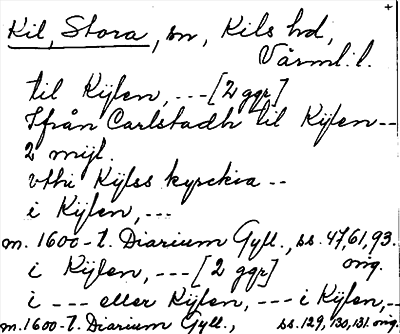 +
Kil, Stora, sn, Kils hd,
Värml. l.
til Kijlen, --- [2 ggr]
Ifrån Carlstadh til Kijlen --
2 mijl.
vthi Kijlss kyrckia --
i Kijlen, ---
m. 1600-t. Diarium Gyll., ss. 47, 61, 93.
orig.
i Kijlen, --- [2 ggr]
i --- eller Kijlen, --- i Kijlen, --
m. 1600-t. Diarium Gyll., ss. 129, 130, 131. orig.